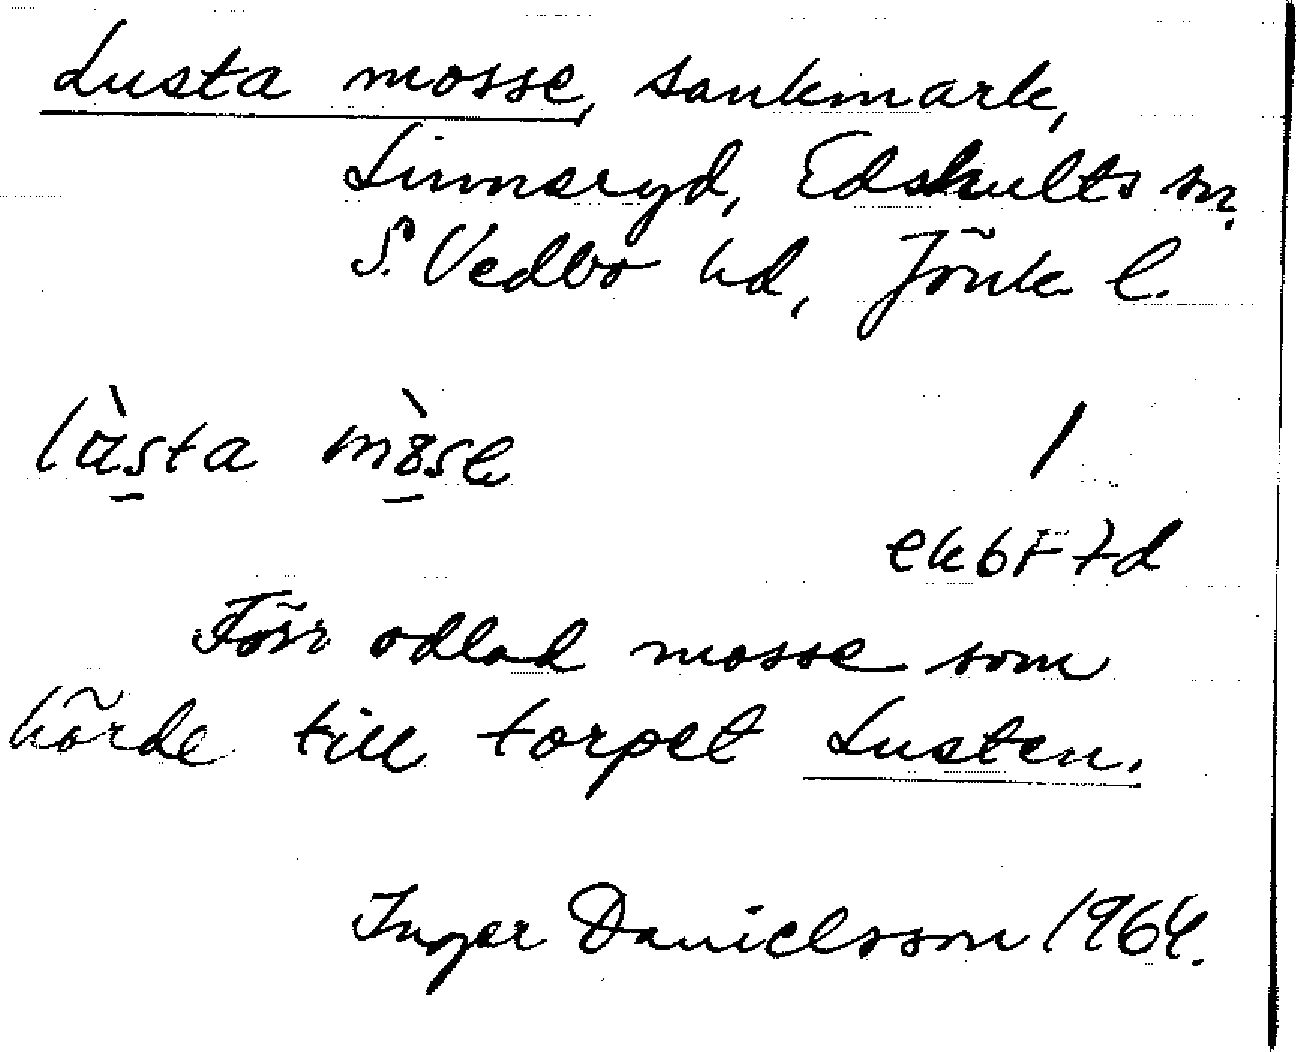 Lusta mosse, sankmark,
Linneryd, Edshults sn.
S. Vedbo hd, Jönk l.
1
ek 6F 7d
Förr odlad mosse som
hörde till torpet Lusten.
Inger Danielsson 1964.